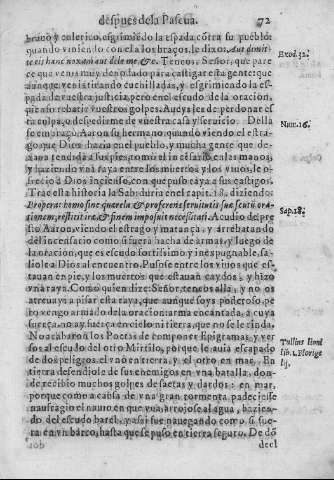 despues dela Pascua. 72
brauo y colerico, esgrimiẽdo la espada cõtra su pueblo:
quando viniendo con ela los braços, le dixo, Aut dimit
te eis hanc noxam aut dele me, &c. Teneos, Señor, que pare
ce que venis muy denodado para castigar esta gente: que
aunque venistirando cuchilladas, y esgrimiendo la es-
pada de vuestra justicia, pero en el escudo de la oracion,
que a esso rebatir vuestros golpes. Aueys les de perdonar es
ta culpa, o despedirme de vuestra casa y seruicio. Desta
se amparò Aaron su hermano, quando viendo el estra-
go que Dios hazia en el pueblo, y mucha gente que de-
xaua tendida a sus pies, tomò el incẽsario en las manos,
y haziendo vna raya entre los muertos y los viuos, le o-
frecio à Dios inciẽso, con que puso raya a sus castigos.
Trae esta historia la Sabiduria en el capit. 18. diziendo:
Properans homo sine querela & proferens seruitutis suæ scutũ ora-
tionem, restitit iræ, & finem imposuit necessitati. Acudio de pres-
to Aaron, viendo el estrago y matança, y arrebatando
del incensario como si fuera hacha de armas, y luego de
la oracion, que es escudo fortissimo y inexpugnable, sa-
liole à Dios al encuentro. Pusose entre los viuos que es-
tauan en pie, y los muertos que estauan caydos, y hizo
vna raya. Como quien dize: Señor, teneos alla, y no os
atreuays a pisar esta raya, que aunque soys poderoso, pe-
ro vengo armado de la oracion: arma encantada, a cuya
fuerça, no ay fuerça en cielo ni tierra, que no se le rinda.
No acabaron los Poetas de componer Epigramas, y ver
sos al escudo del otro Mirtilo, porque le auia escapado
de dos peligros, el vno en tierra, y el otro en mar. En
tierra defendiole de sus enemigos en vna batalla, don-
de recibio muchos golpes de saetas y dardos: en mar,
porque como a causa de vna gran tormenta padeciesse
naufragio el nauio en que yua, arrojose al agua, hazien-
do del escudo barco, y assi fue nauegando como si fue-
ra en vn barco, hasta que se puso en tierra seguro. De dõ
decl
Exod. 32.
Num. 16.
Sap. 18.